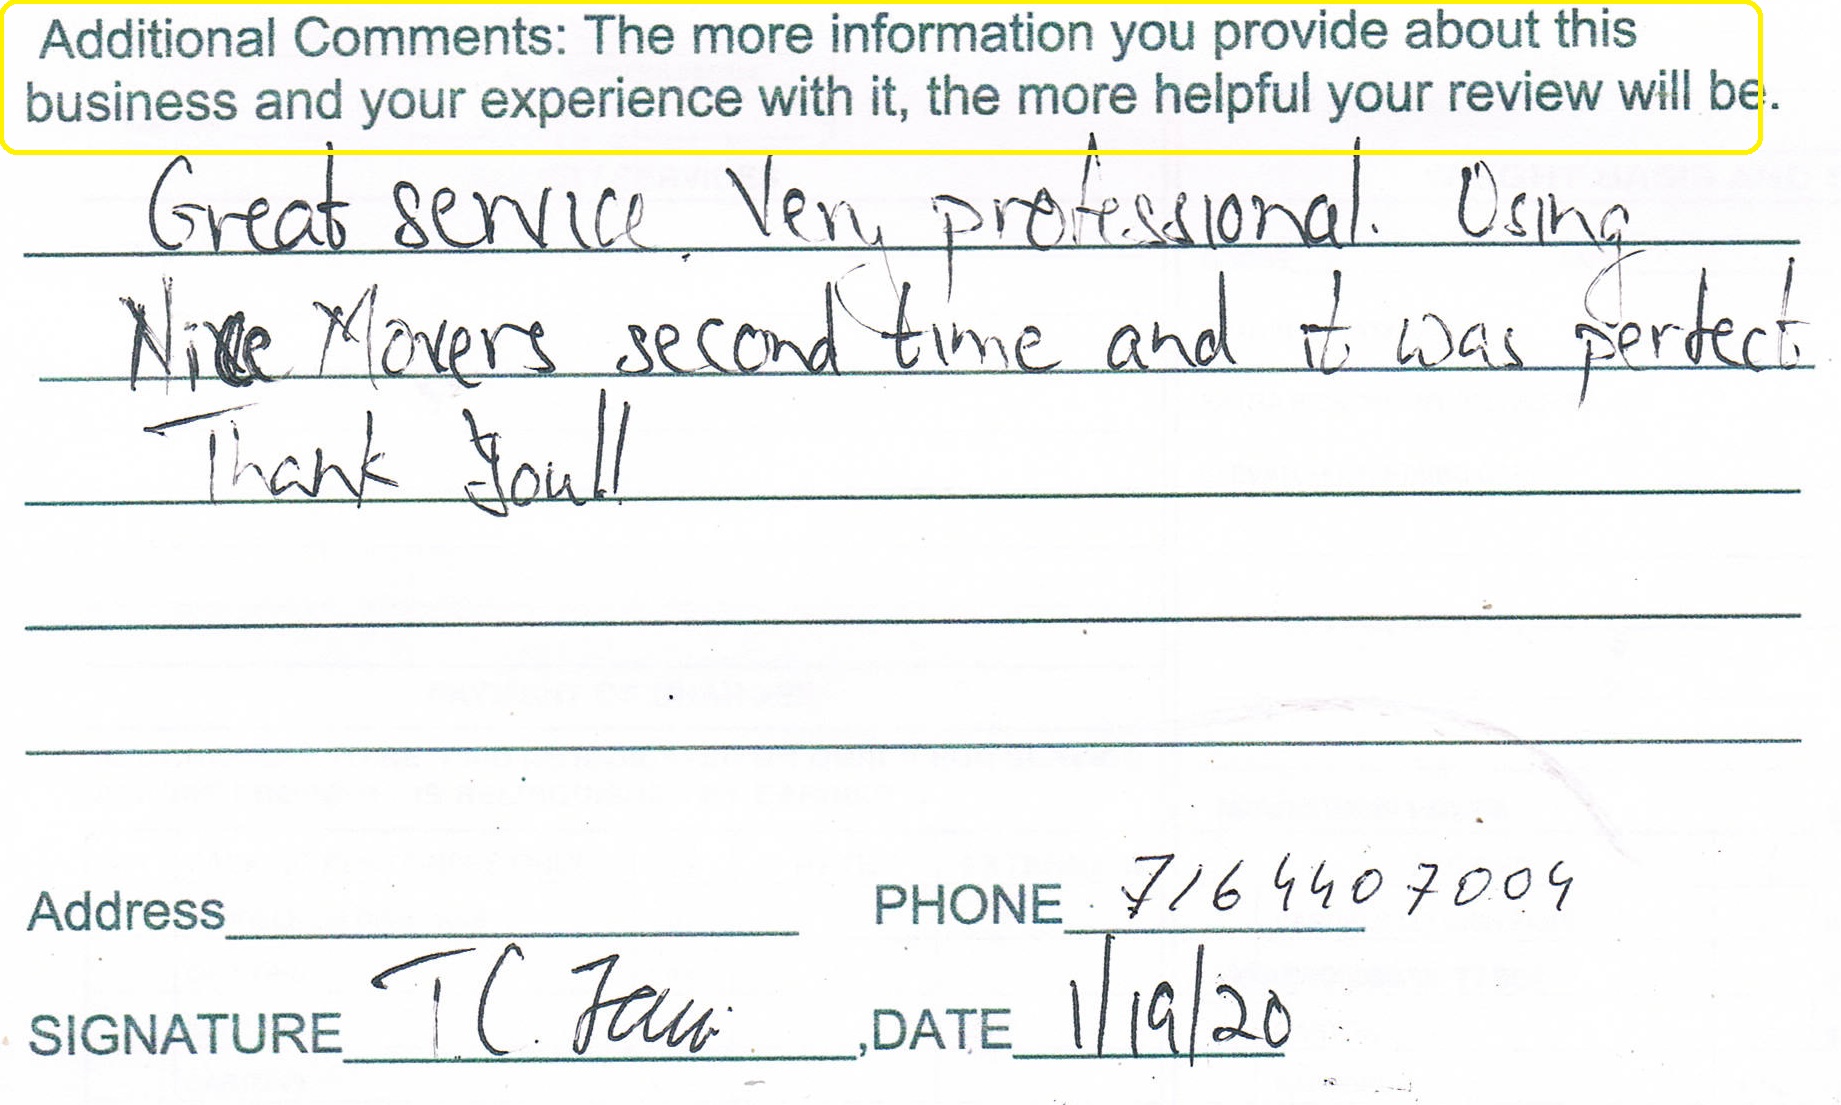 Additional Comments: The more information you provide about this
business and your experience with it, the more helpful your review will be.
Great service. Very professional. Using
Nice Movers second time and it was perfect.
Thank you!!
Address PHONE 716 440 7004
SIGNATURE T C ,DATE 1/19/20